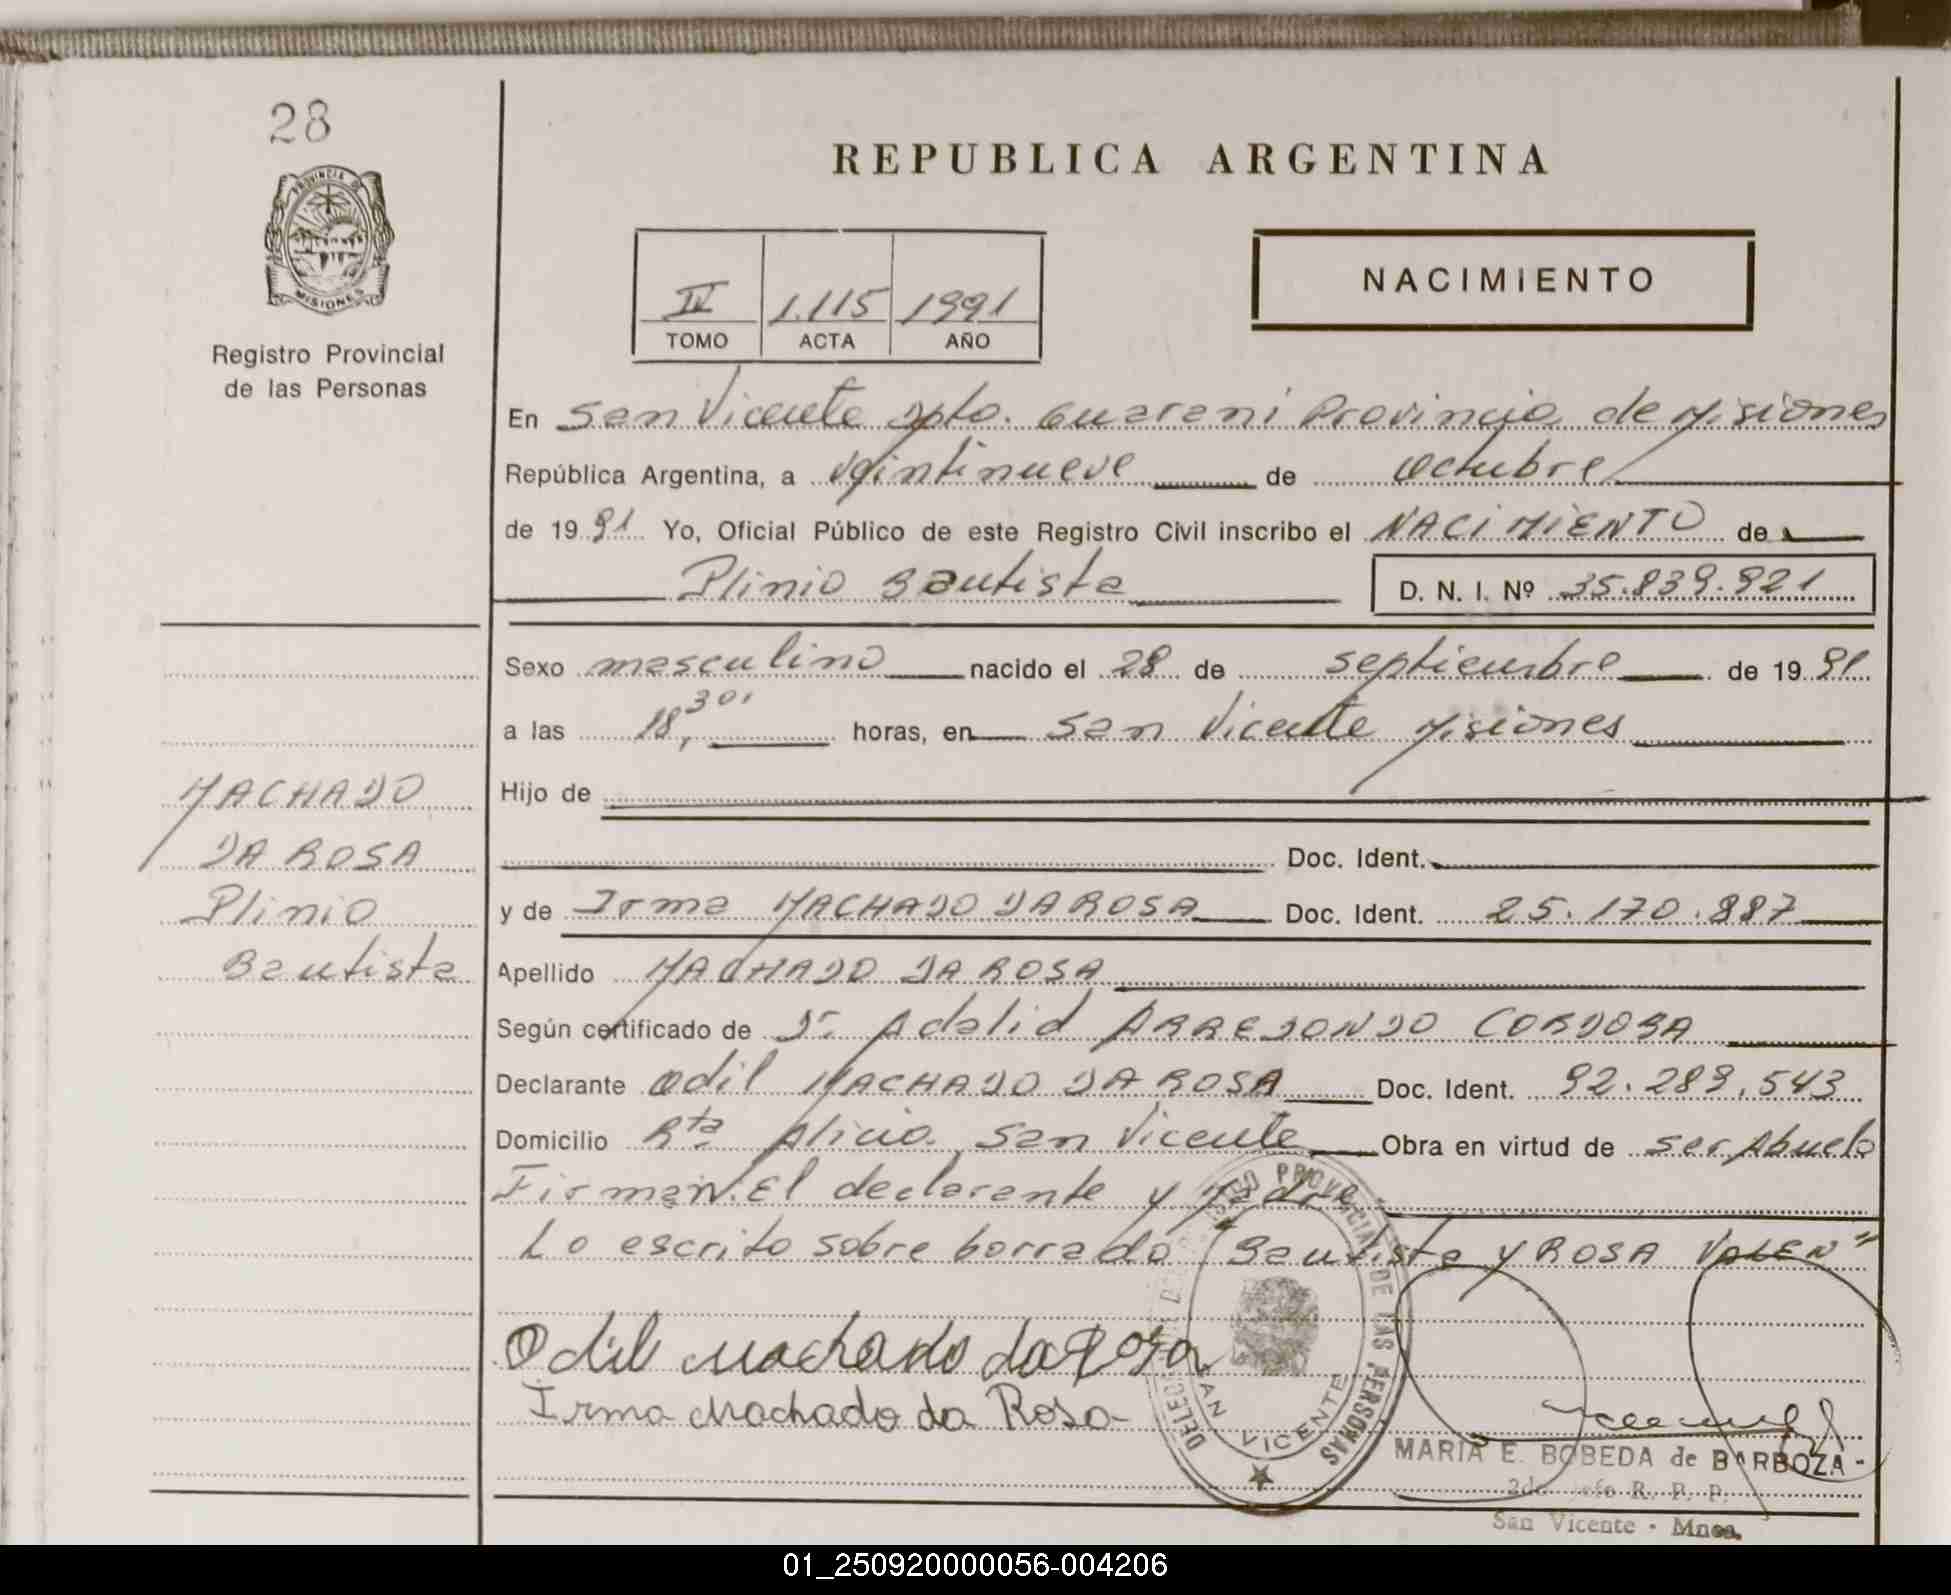 28
PROVINCIA DE
MISIONES
Registro Provincial
de las Personas
REPUBLICA ARGENTINA
IV 1.115 1991
TOMO ACTA AÑO
NACIMIENTO
En San Vicente Dpto. Guarani Provincia de Misiones
República Argentina, a veintinueve de Octubre
de 1991 Yo, Oficial Público de este Registro Civil inscribo el NACIMIENTO de
Plinio Bautista D. N. I. Nº 35.839.921
Sexo masculino nacido el 28 de septiembre de 1991
a las 18,30' horas, en San Vicente Misiones
Hijo de
Doc. Ident.
y de Irma MACHADO DA ROSA Doc. Ident. 25.170.887
Apellido MACHADO DA ROSA
Según certificado de Dr. Adalid ARREDONDO CORDOBA
Declarante Odil MACHADO DA ROSA Doc. Ident. 92.289.543
Domicilio Rta Alicia San Vicente Obra en virtud de ser Abuelo
Firman. El declarante y Madre
Lo escrito sobre borrado "Bautista y ROSA VALEN"
MACHADO
DA ROSA
Plinio
Bautista
Odil Machado da Rosa
Irma Machado da Rosa
PROVINCIAL DE LAS PERSONAS
SAN VICENTE
MARIA E. BOBEDA de BARBOZA
2do Jefe R. P. P.
San Vicente - Mnes.
01_250920000056-004206